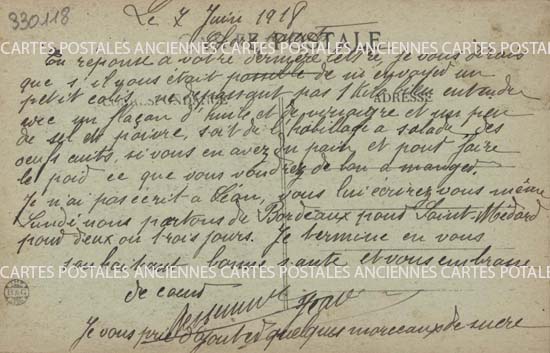 330118
Le 7 Juin 1918
CARTE POSTALE
En reponse a votre derniere lettre, je vous dirais
que s'il vous était possible de m'envoyer un
petit colis, ne depassant pas 1 kilo bien entendu
CORRESPONDANCE ADRESSE
avec un flacon d'huile et de vinaigre et un peu
de sel et poivre, soit de l'habillage a salade des
oeufs cuits, si vous en avez du pain et pour faire
le poid ce que vous voudrez de bon a manger.
Je n'ai pas écrit a Léon, vous lui ecrirez vous même
Lundi nous partons de Bordeaux pour Saint-Médard
CARTES POSTALES ANCIENNES CARTES POSTALES ANCIENNES CARTES POSTALES ANCIENNES
pour deux ou trois jours. Je termine en vous
souhaitant bonne sante et vous embrasse
de coeur
B&G
Je vous prie d'ajouter quelques morceaux de sucre